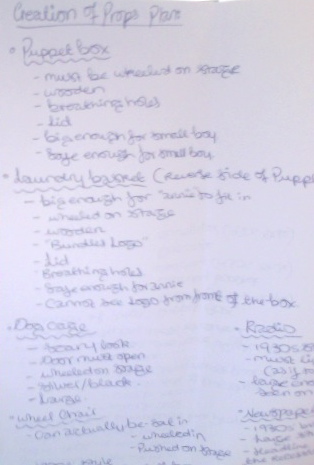 Creation of Props Plan
• Puppet box
- must be wheeled on stage
- wooden
- breathing holes
- lid
- big enough for small boy
- safe enough for small boy
• Laundry basket (reverse side of Pupp
- big enough for "annie" to fit in
- wheeled on stage
- wooden
- "Bundles Logo"
- Lid
- Breathing holes
- Safe enough for annie
- Cannot see Logo from front of the box
• Dog Cage
- Scary look
- Door must open
- wheeled on stage
- Silver/black
- Large
• Wheel Chair
- Can actually be sat in
- wheeled in
- Pushed on stage
• Radio
- 1930s
- must li
(as if to
- large eno
seen on
• Newspape
- 1930s
- large
- Headline